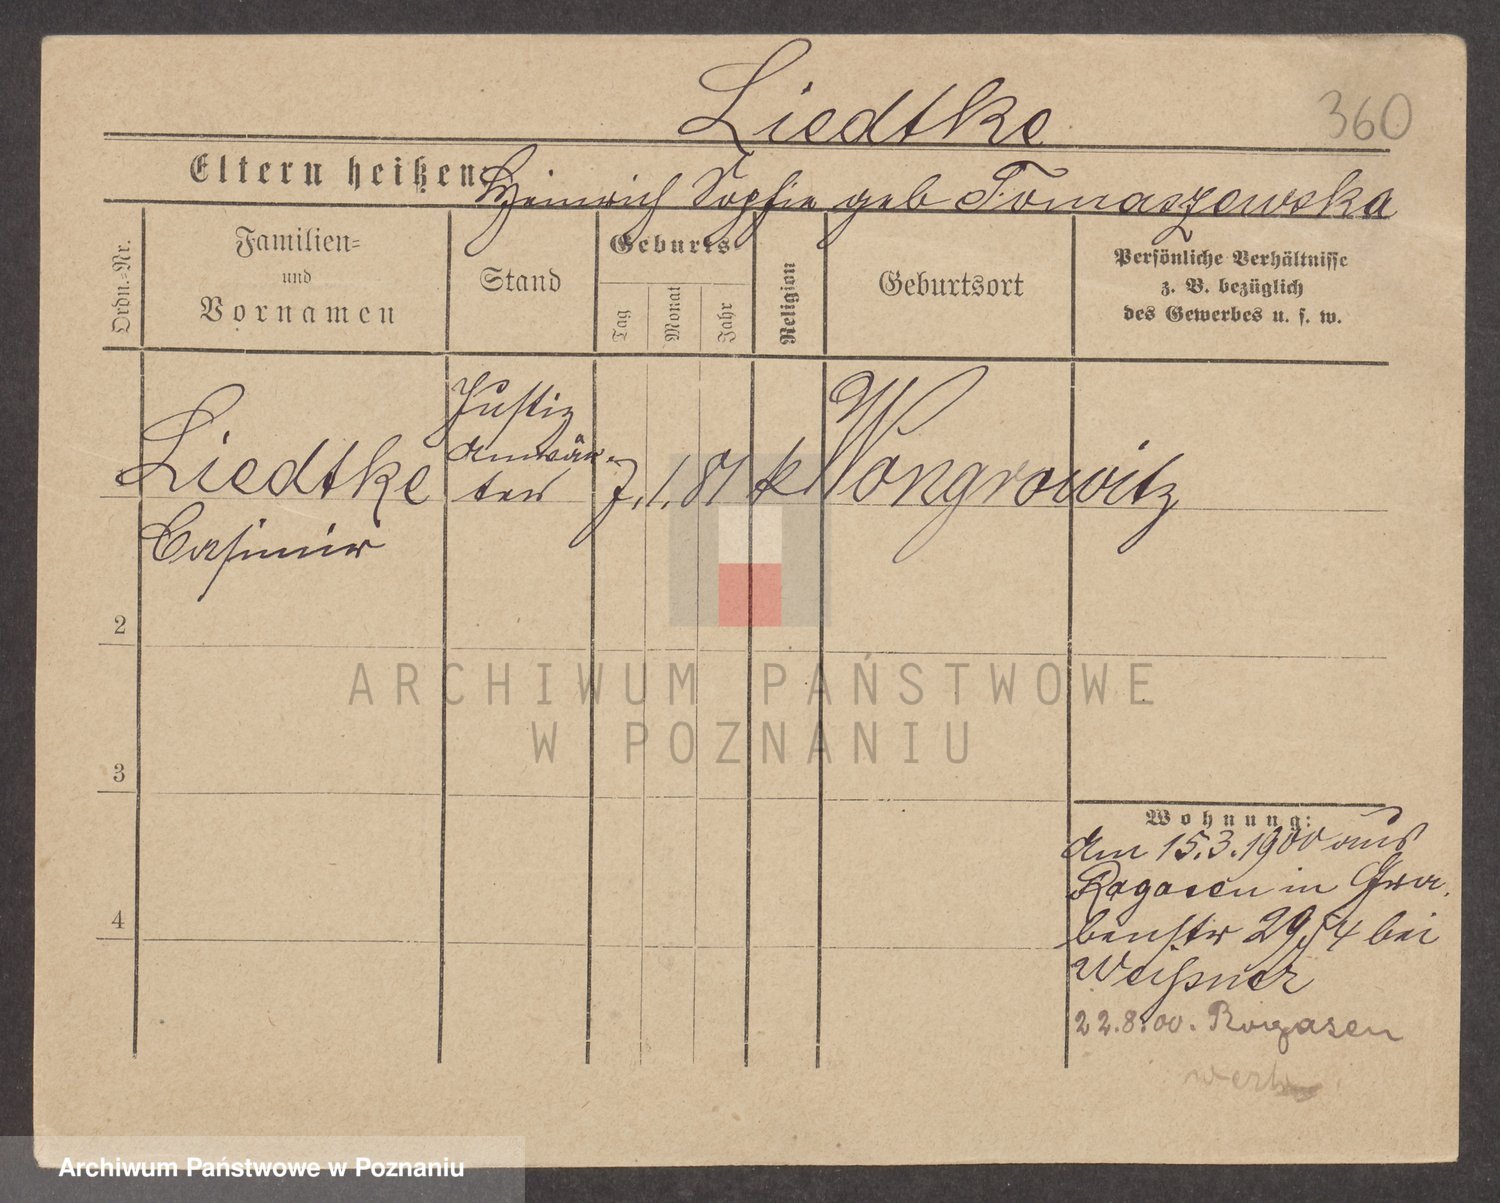 Liedtke
360
Eltern heißen Heinrich Sophie geb Tomaszowska
Ordn.=Nr.
Familien=
und
Vornamen
Stand
Geburts
Tag
Monat
Jahr
Religion
Geburtsort
Persönliche Verhältnisse
z. B. bezüglich
des Gewerbes u. s. w.
Liedtke
Casimir
Justiz
Anwär-
ter
7. 1. 81
k
Wongrowitz
2
3
4
Wohnung:
Am 15.3.1900 aus
Rogasen in Gra-
benstr 29 bei
Weißner
22.8.00. Rogasen
ARCHIWUM PAŃSTWOWE
W POZNANIU
Archiwum Państwowe w Poznaniu